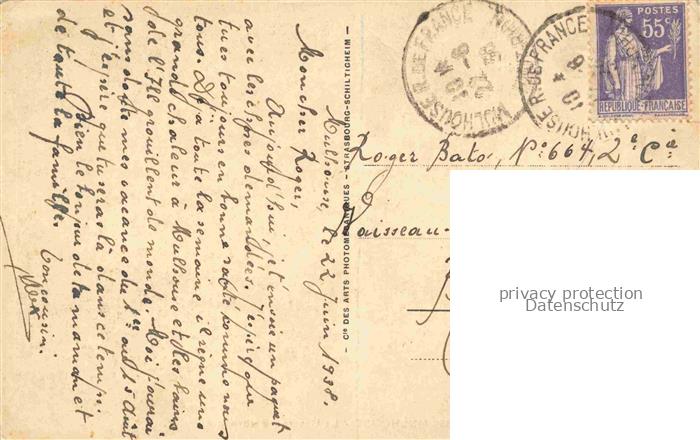 Mulhouse, le 22 Juin 1938.
Mon cher Roger,
Aujourd'hui, je t'envoie un paquet
avec les choses demandées. J'espère que
tu es toujours en bonne santé comme nous
tous. Ici à toute la semaine il règne une
grande chaleur à Mulhouse et les bains
de l'Ill grouillent de monde. Moi j'aurai
sans doute mes vacances du 1er au 15 août
et j'espère que tu seras là dans ce temps.
Bien le bonjour de ta maman et
de toute la famille.
Ton cousin:
- Cie DES ARTS PHOTOMÉCANIQUES - STRASBOURG-SCHILTIGHEIM -
MULHOUSE R. DE FRANCE
HAUT-RHIN
MULHOUSE R. DE FRANCE
POSTES
55c
REPUBLIQUE-FRANÇAISE
Roger Bato, No 664, 2e Cie
Vaisseau-
privacy protection
Datenschutz